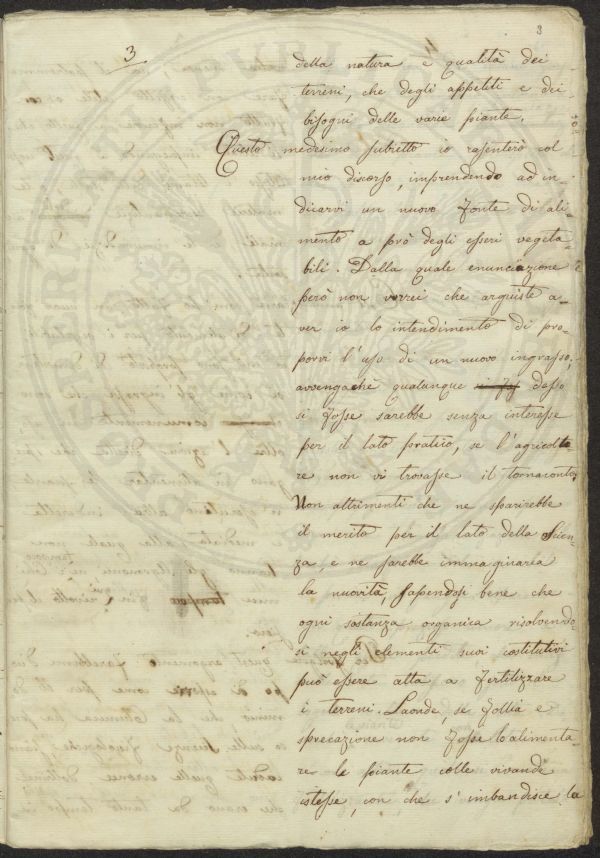 3
3
della natura e qualità dei
terreni, che degli appetiti e dei
bisogni delle varie piante.
Questo medesimo subietto io rasenterò col
mio discorso, imprendendo ad in-
dicarvi un nuovo fonte di ali-
mento a prò degli esseri vegeta-
bili. Dalla quale enunciazione
però non vorrei che arguiste a-
ver io lo intendimento di pro-
porvi l'uso di un nuovo ingrasso,
avvengachè qualunque desso
si fosse sarebbe senza interesse
per il lato pratico, se l'agricolto
re non vi trovasse il tornaconto;
Non altrimenti che ne sparirebbe
il merito per il lato della scien-
za, e ne sarebbe immaginaria
la nuovità, sapendosi bene che
ogni sostanza organica risolvendo-
si negli elementi suoi costitutivi
può essere atta a fertilizzare
i terreni. Laonde, se follia e
sprecazione non fosse lo alimenta-
re le piante colle vivande
istesse, con che s'imbandisce la